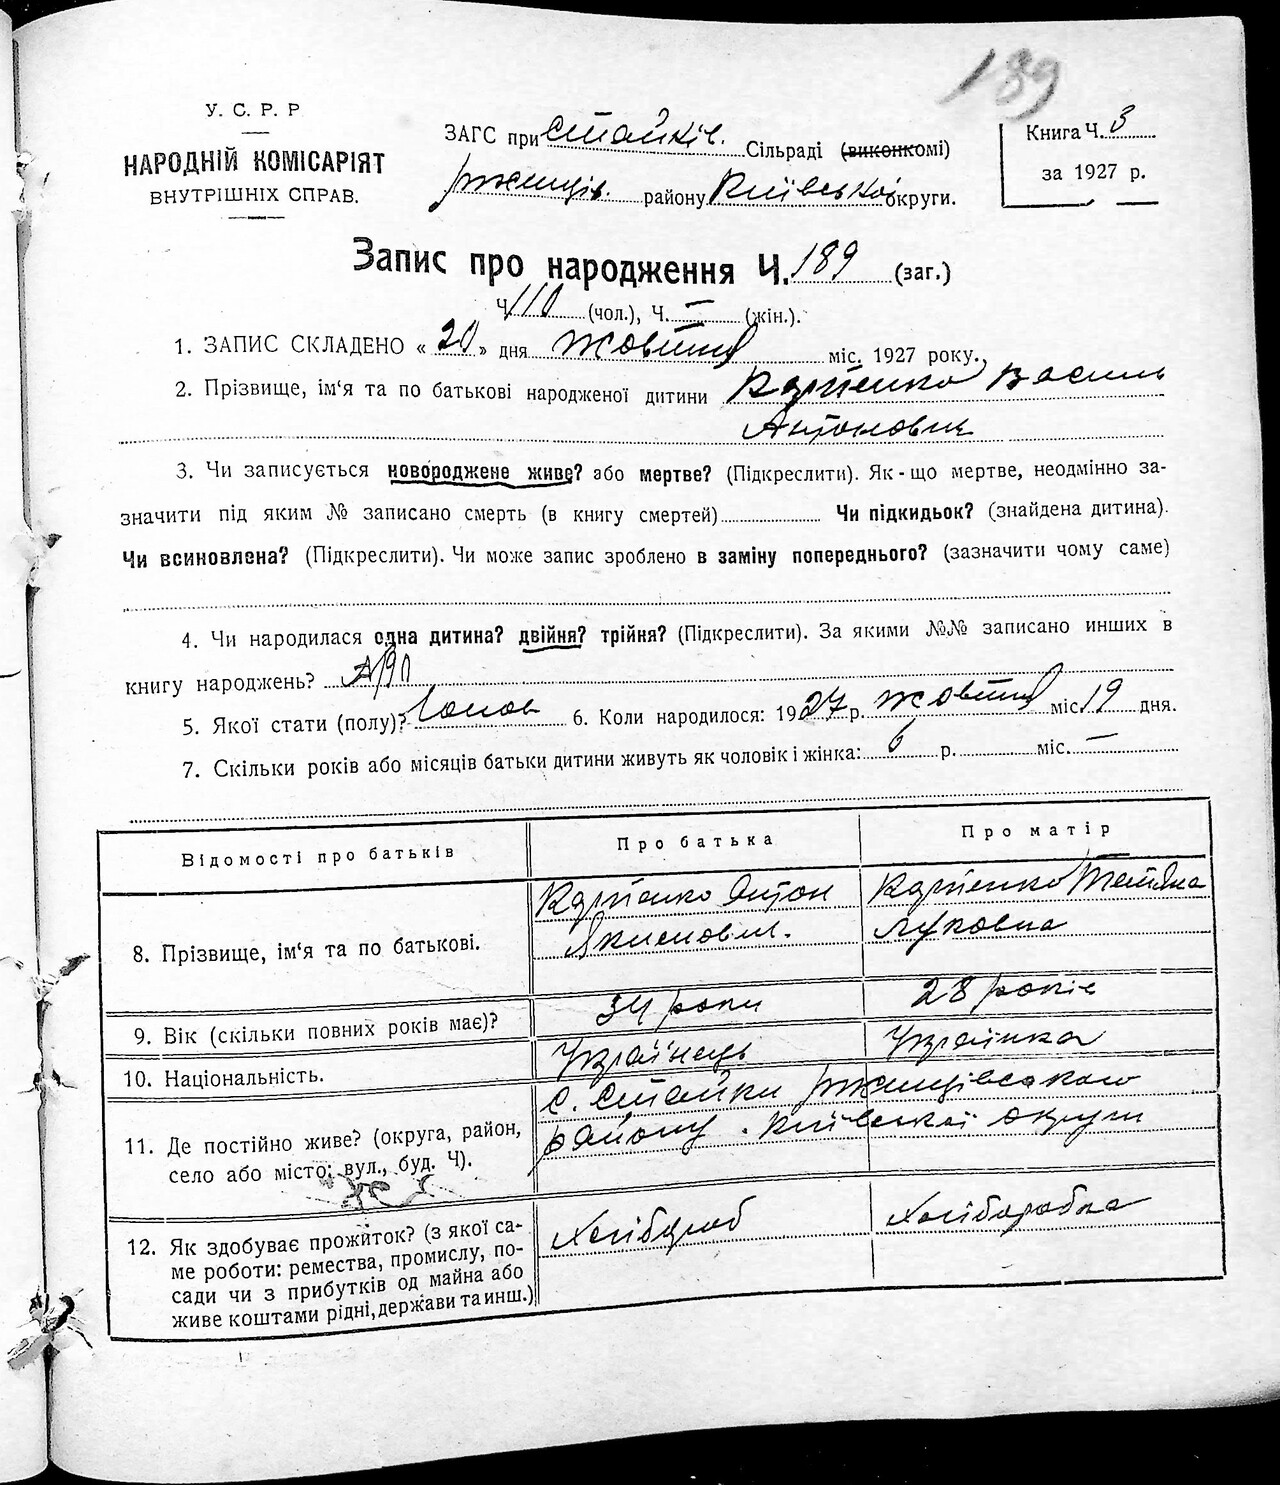 189
У. С. Р. Р
НАРОДНІЙ КОМІСАРІЯТ
ВНУТРІШНІХ СПРАВ.
ЗАГС при Стайків. Сільраді (виконкомі)
Ржищів. району Київської округи.
Книга Ч. 3
за 1927 р.
Запис про народження Ч. 189 (заг.)
Ч 110 (чол.), Ч. — (жін.).
1. ЗАПИС СКЛАДЕНО « 20 » дня жовтня міс. 1927 року.
2. Прізвище, ім'я та по батькові народженої дитини Карпенко Василь
Антонович
3. Чи записується новороджене живе? або мертве? (Підкреслити). Як-що мертве, неодмінно за-
значити під яким № записано смерть (в книгу смертей) Чи підкидьок? (знайдена дитина).
Чи всиновлена? (Підкреслити). Чи може запис зроблено в заміну попереднього? (зазначити чому саме)
4. Чи народилася одна дитина? двійня? трійня? (Підкреслити). За якими №№ записано инших в
книгу народжень? №190
5. Якої стати (полу)? 6. Коли народилося: 1927 р. жовтня міс. 19 дня.
7. Скільки років або місяців батьки дитини живуть як чоловік і жінка: 6 р. міс. —
Відомості про батьків
Про батька
Про матір
8. Прізвище, ім'я та по батькові.
Карпенко Антон
Якимович.
Карпенко Тетяна
Луковна
9. Вік (скільки повних років має)?
34 роки
28 років
10. Національність.
Українець
Українка
11. Де постійно живе? (округа, район,
село або місто; вул., буд. Ч).
с. Стайки Ржищівського
району. Київської округи
12. Як здобуває прожиток? (з якої са-
ме роботи: ремества, промислу, по-
сади чи з прибутків од майна або
живе коштами рідні, держави та инш.)
Хлібороб
Хліборобка